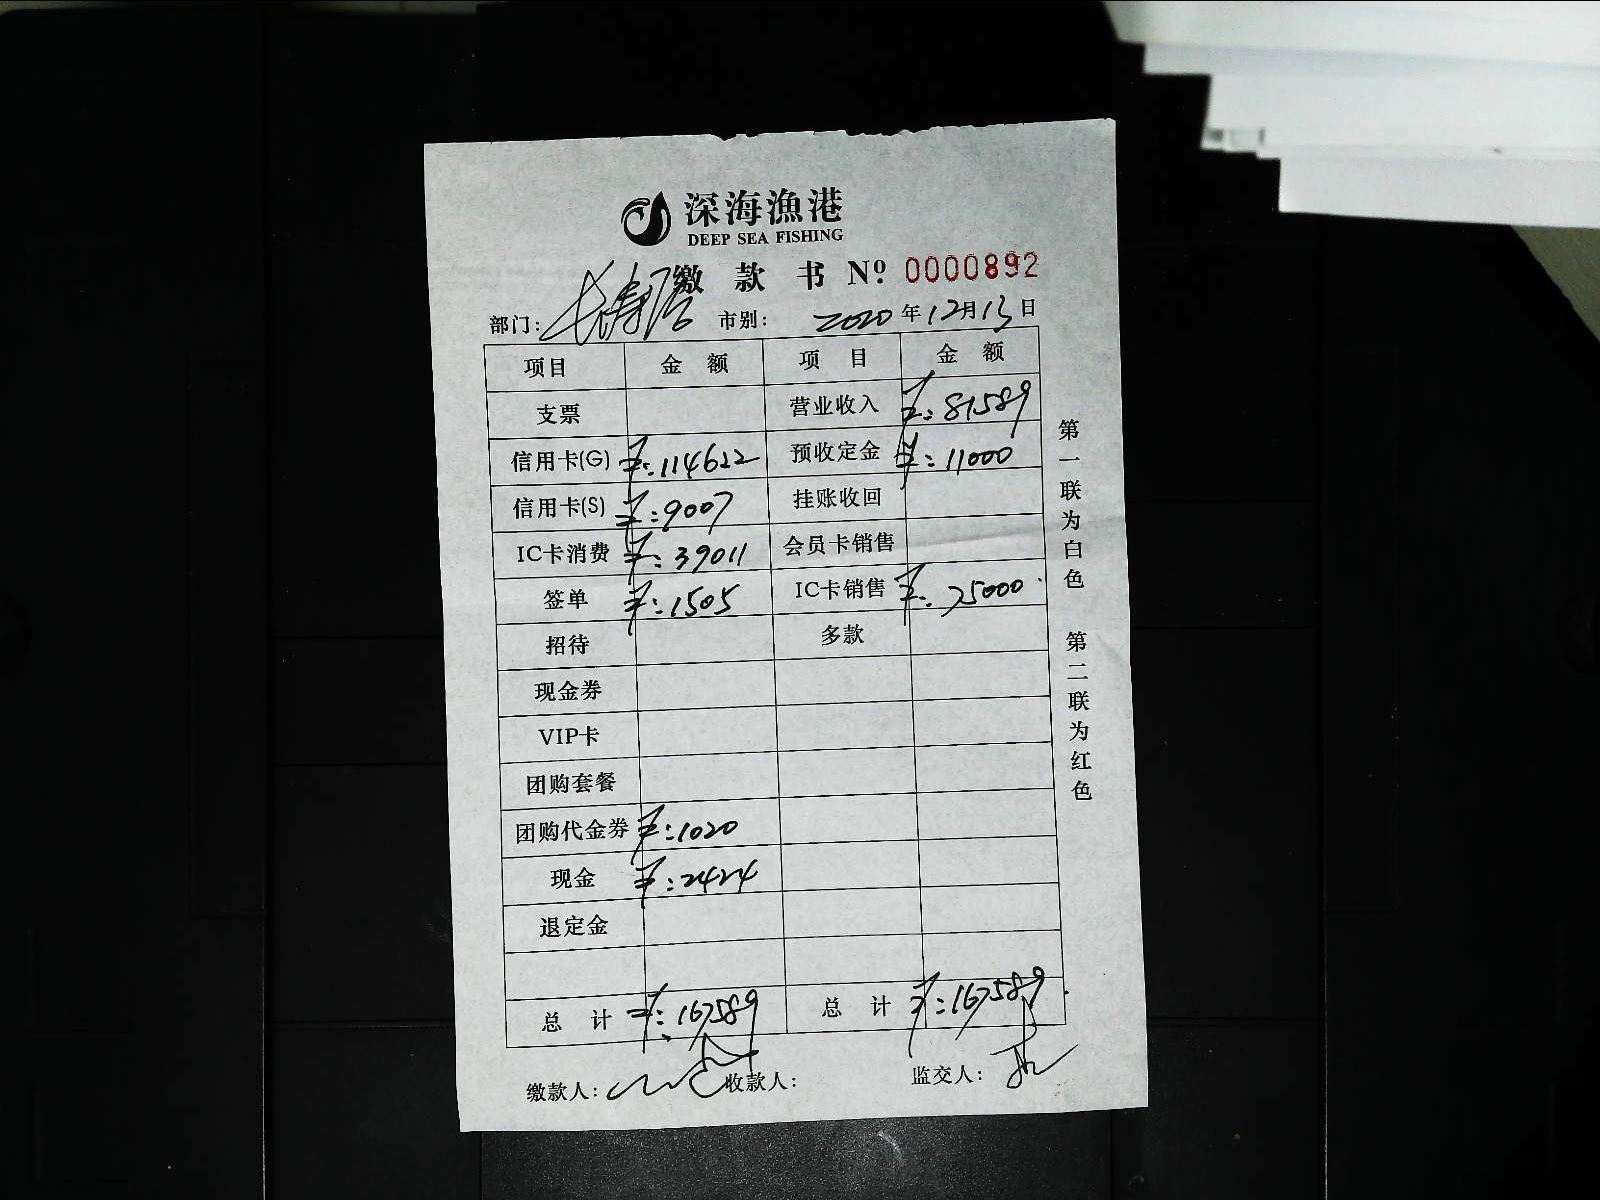 深海漁港
DEEP SEA FISHING
缴 款 书 Nº 0000892
部门: 长寿路 市别: 2020 年 12 月 13 日
项目 金 额 项 目 金 额
支票 营业收入 ¥:81589
信用卡(G) ¥:114622 预收定金 ¥:11000
信用卡(S) ¥:9007 挂账收回
IC卡消费 ¥:39011 会员卡销售
签单 ¥:1505 IC卡销售 ¥:75000
招待 多款
现金券
VIP卡
团购套餐
团购代金券 ¥:1020
现金 ¥:2424
退定金
总 计 ¥:167589 总 计 ¥:167589
缴款人: 收款人: 监交人:
第一联为白色 第二联为红色